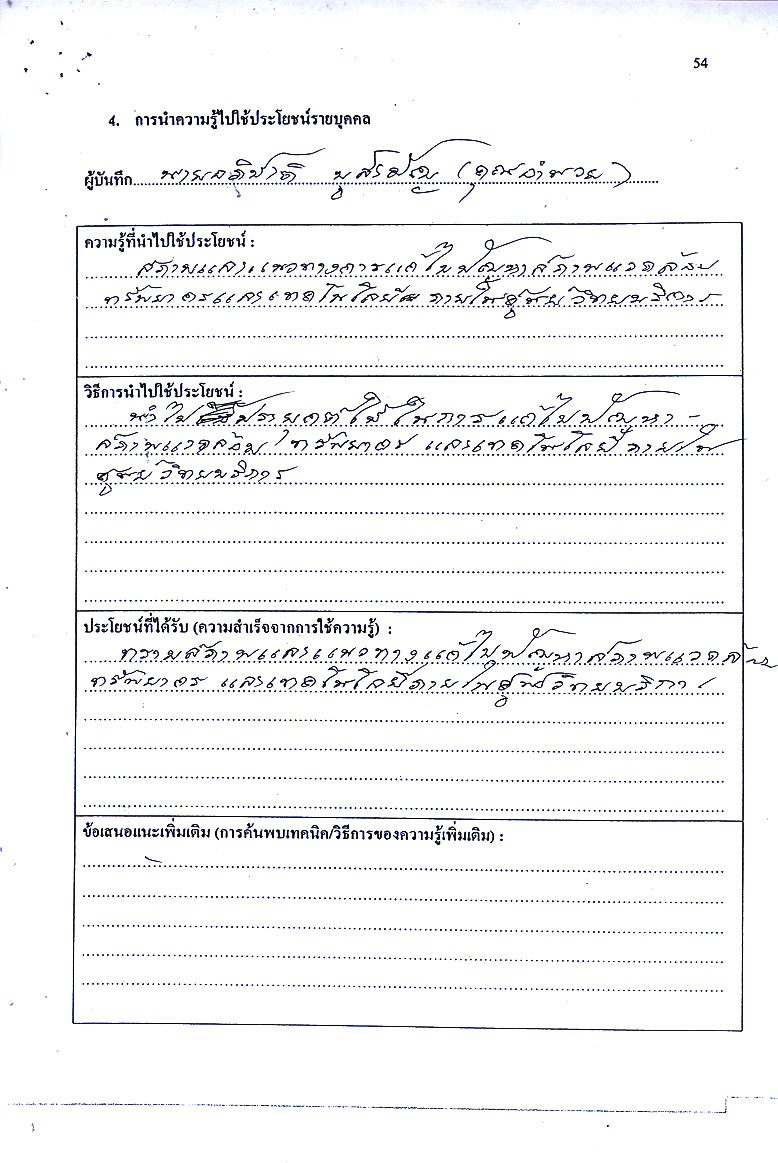 54
4. การนำความรู้ไปใช้ประโยชน์รายบุคคล
ผู้บันทึก นายอภิชาติ (คุณอำนวย)
ความรู้ที่นำไปใช้ประโยชน์ :
สภาพและแนวทางการแก้ไขปัญหาสภาพแวดล้อม
ทรัพยากรและเทคโนโลยี ภายในศูนย์วิทยบริการ
วิธีการนำไปใช้ประโยชน์ :
นำไป ใช้ในการแก้ไขปัญหา -
สภาพแวดล้อม ทรัพยากร และเทคโนโลยี ภายใน
ศูนย์วิทยบริการ
ประโยชน์ที่ได้รับ (ความสำเร็จจากการใช้ความรู้) :
ทราบสภาพและแนวทางแก้ไขปัญหาสภาพแวดล้อม
ทรัพยากร และเทคโนโลยีภายในศูนย์วิทยบริการ
ข้อเสนอแนะเพิ่มเติม (การค้นพบเทคนิค/วิธีการของความรู้เพิ่มเติม) :